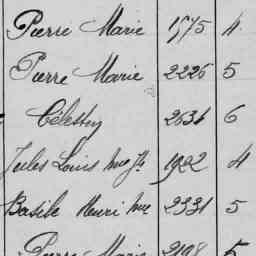 Pierre Marie 1575 4
Pierre Marie 2226 5
Célestin 2631 6
Jules Louis 1922 4
Basile Henri Mie 2331 5
Pierre Marie 2198 5